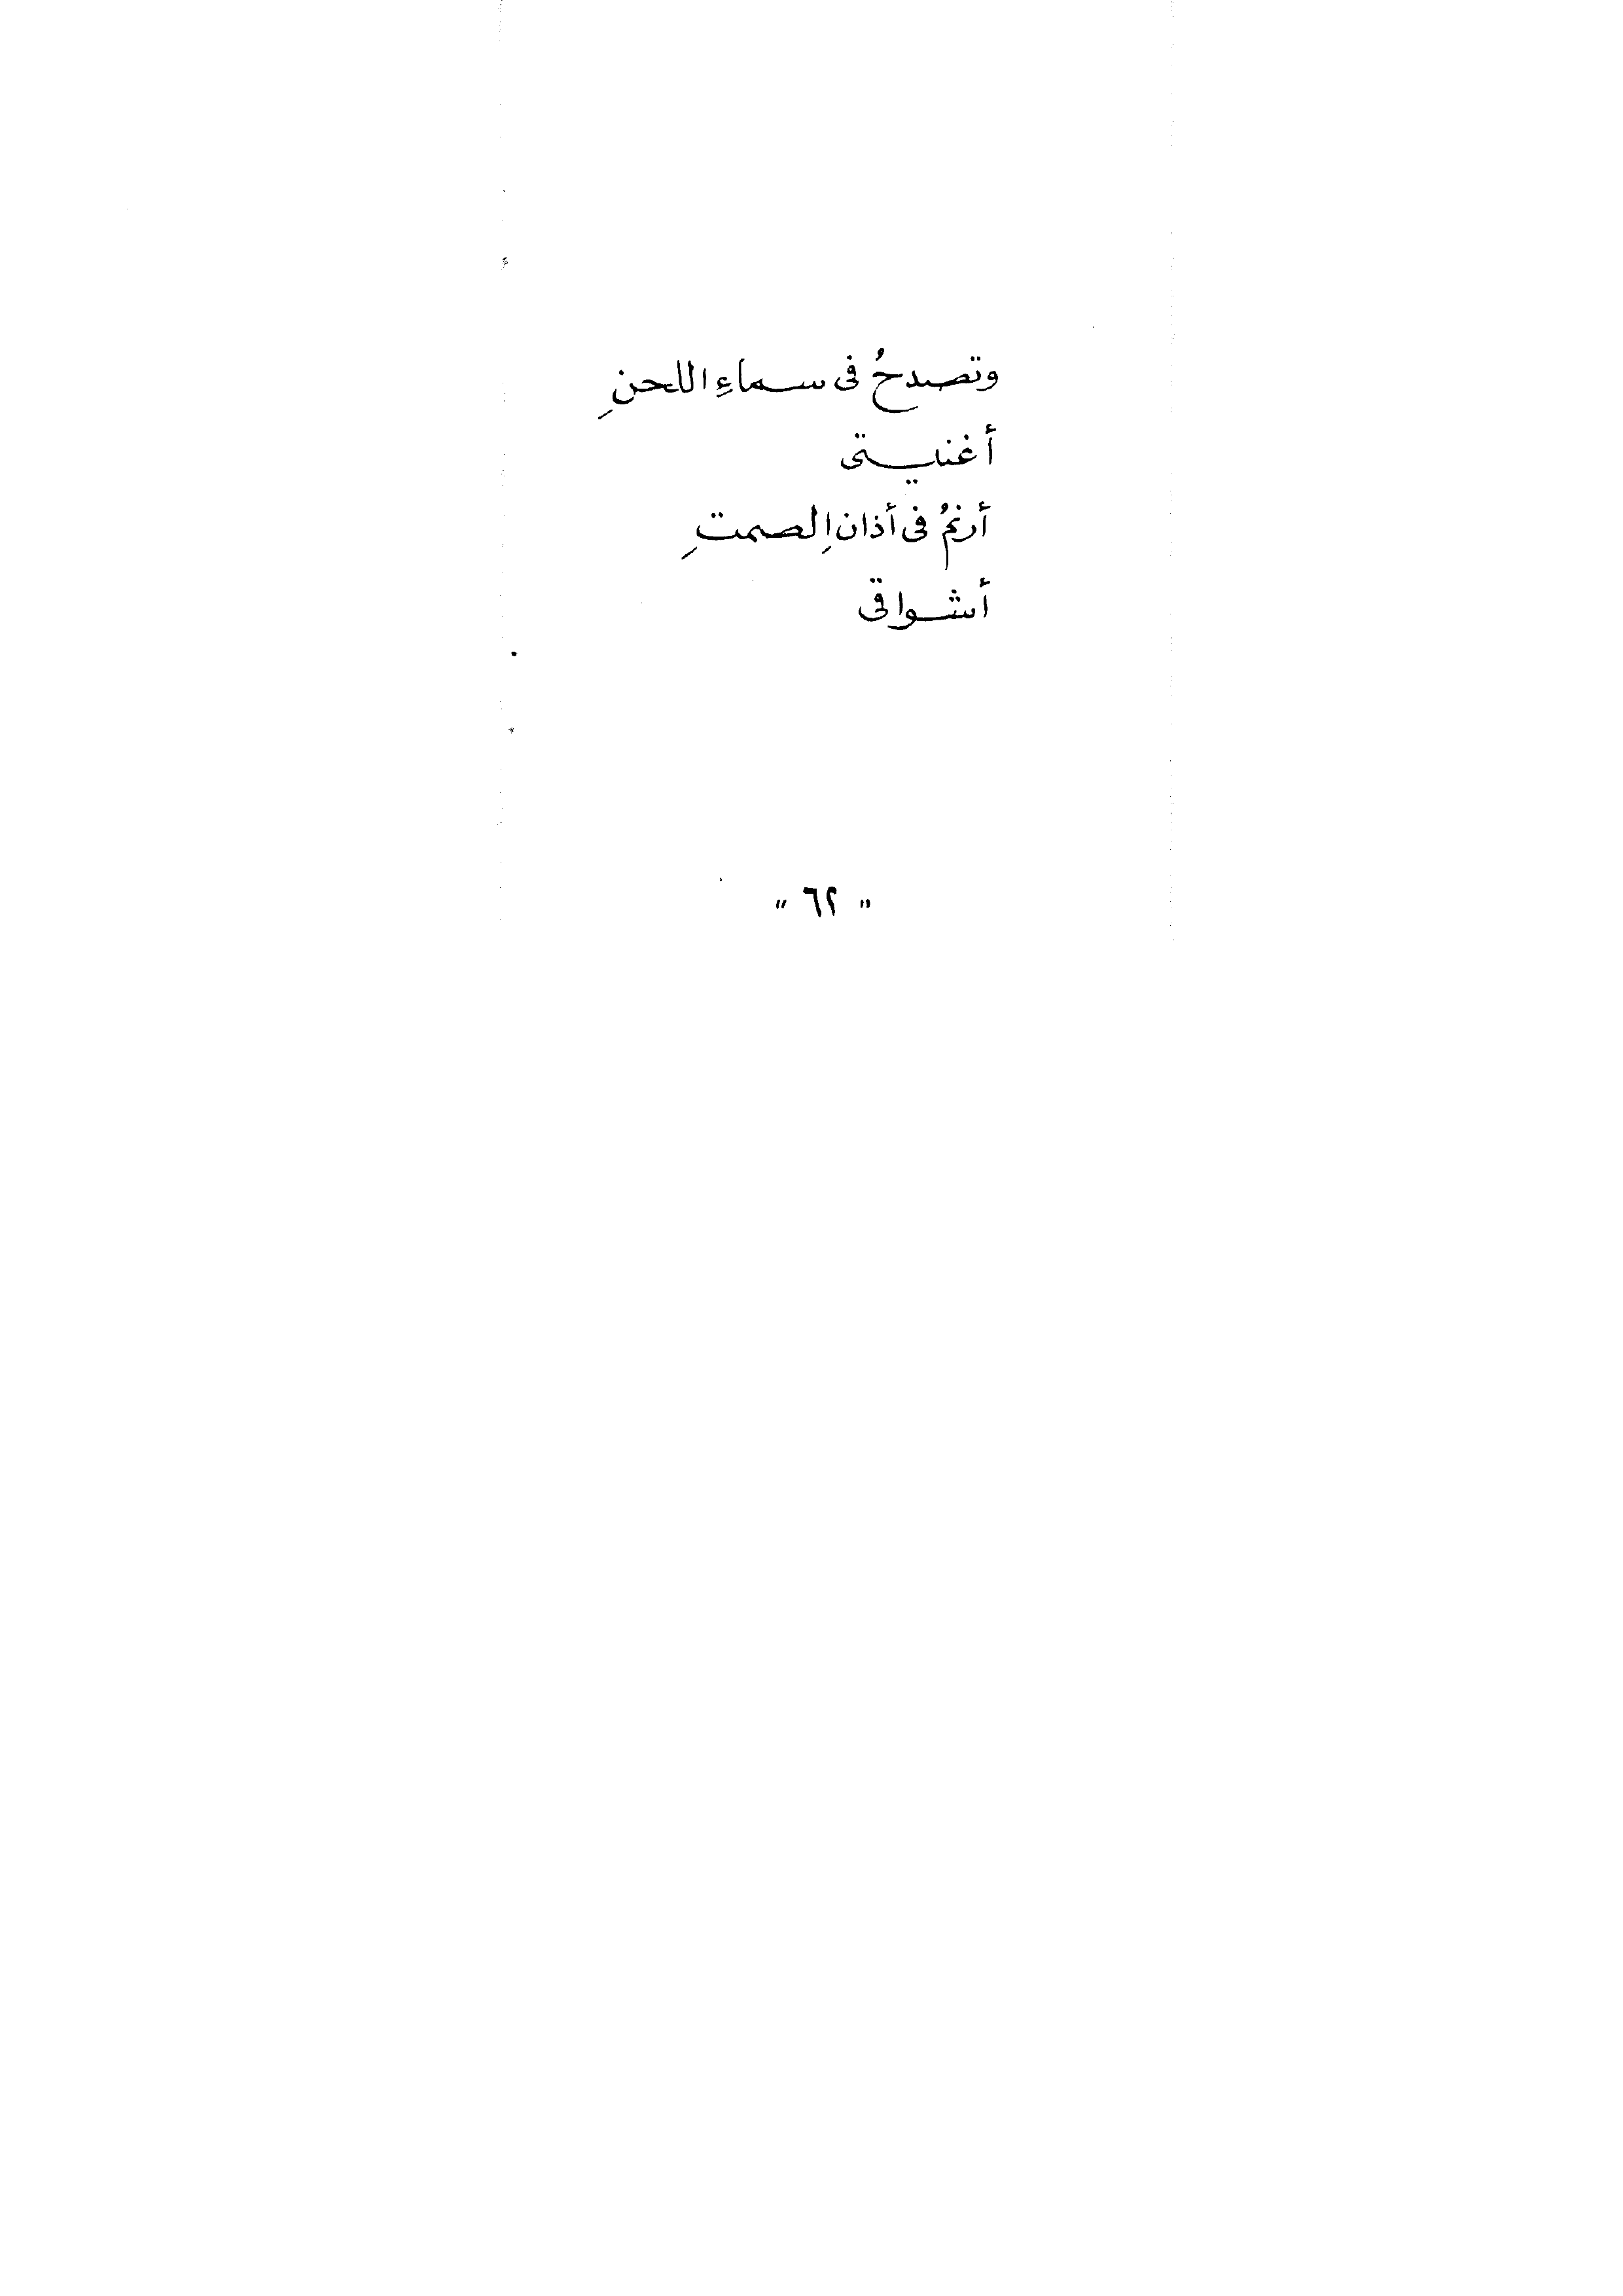 وتصدحُ فى سماءِ اللحنِ
أغنيتى
أرنمُ فى أذانِ الصمتِ
أشواقى
" ٦٢ "